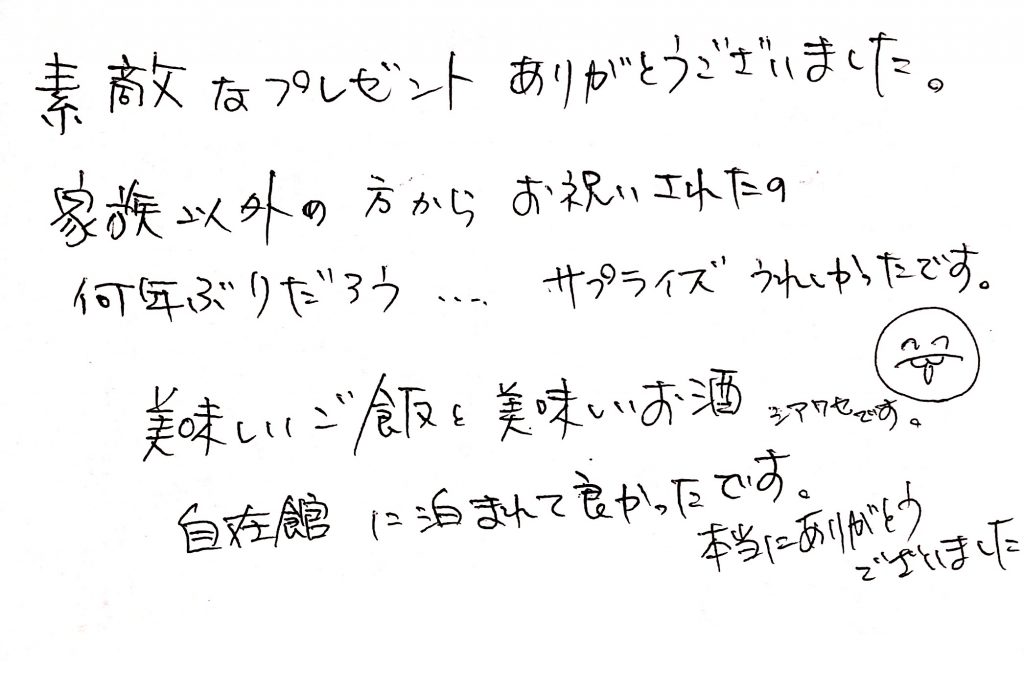 素敵なプレゼント ありがとうございました。
家族以外の方から お祝いされたの
何年ぶりだろう .... サプライズ うれしかったです。
美味しいご飯と美味しいお酒 シアワセです。
自在館に泊まれて良かったです。
本当にありがとう
ございました